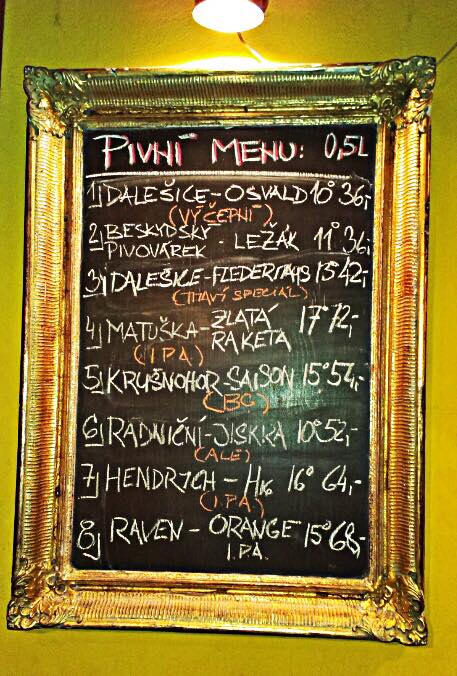 PIVNÍ MENU: 0,5L
1) DALEŠICE - OSVALD 10° 36,-
(VÝČEPNÍ)
2) BESKYDSKÝ PIVOVÁREK - LEŽÁK 11° 36,-
3) DALEŠICE - FLEDERMAUS 13° 42,-
(TMAVÝ SPECIÁL)
4) MATUŠKA - ZLATÁ RAKETA 17° 72,-
(IPA)
5) KRUŠNOHOR - SAISON 15° 54,-
(BG)
6) RADNIČNÍ - JISKRA 10° 52,-
(ALE)
7) HENDRYCH - H16 16° 64,-
(I.P.A.)
8) RAVEN - ORANGE 15° 68,-
I.P.A.